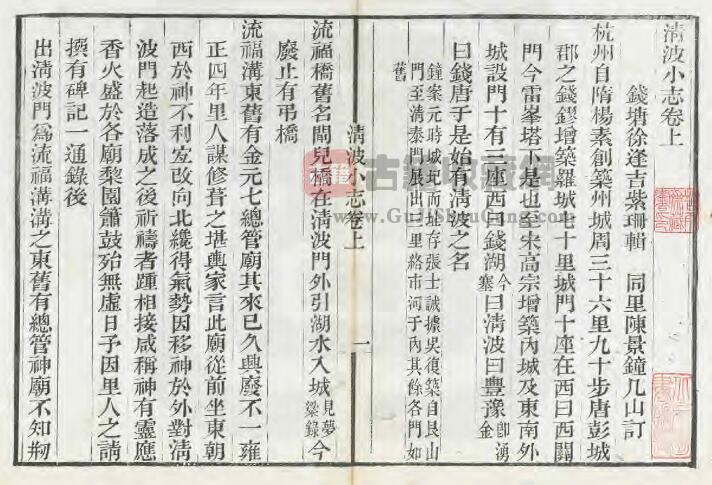 清波小志卷上
錢塘徐逢吉紫珊輯 同里陳景鐘几山訂
杭州自隋楊素創築州城周三十六里九十步唐彭城
郡之錢鏐增築羅城七十里城門十座在西曰西關
門今雷峯塔下是也至宋高宗增築內城及東南外
城設門十有三座西曰錢湖今塞曰清波曰豐豫卽湧金
曰錢唐于是始有清波之名
鐘案元時城圮而址存張士誠據吳復築自艮山
門至清泰門展出三里絡市河于內其餘各門如
舊
清波小志卷上 一
流福橋舊名閘兒橋在清波門外引湖水入城見夢粱錄今
廢止有弔橋
流福溝東舊有金元七總管廟其來已久興廢不一雍
正四年里人謀修葺之堪輿家言此廟從前坐東朝
西於神不利宜改向北纔得氣勢因移神於外對清
波門起造落成之後祈禱者踵相接咸稱神有靈應
香火盛於各廟棃園簫鼓殆無虛日予因里人之請
撰有碑記一通錄後
出清波門爲流福溝溝之東舊有總管神廟不知剏
www.GuJiShouCang.com